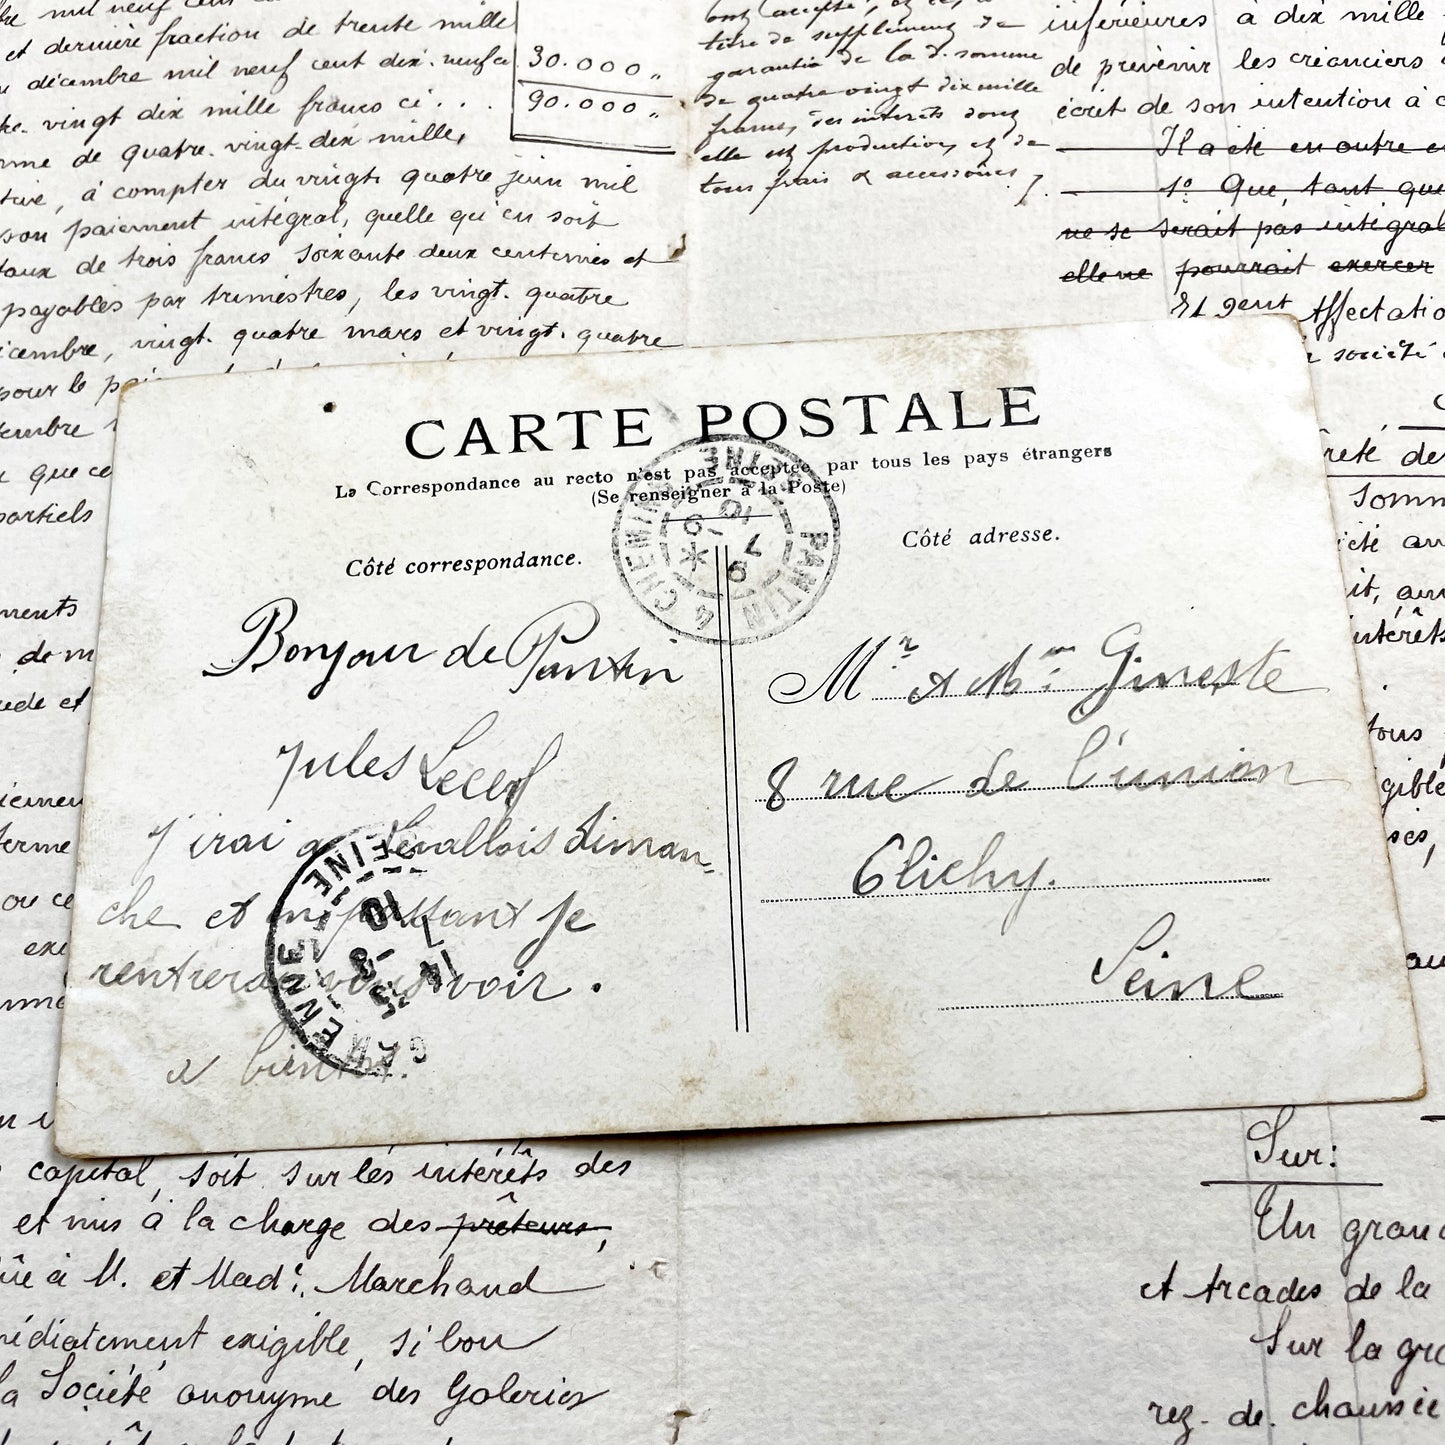 et dernière fraction de trente mille
décembre mil neuf cent dix-neuf ci
30.000 "
vingt dix mille francs ci . . .
90.000 "
de quatre-vingt-dix mille,
à compter du vingt quatre juin mil
son paiement intégral, quelle qu'en soit
taux de trois francs soixante deux centimes et
payables par trimestres, les vingt-quatre
vingt-quatre mars et vingt-quatre
pour le
que ce
partiels
titre de supplément de
garantie de la d. somme
de quatre vingt dix mille
francs, des intérêts dont
elle est productive, et de
tous frais & accessoires
inférieures à dix mille
de prévenir les créanciers
écrit de son intention à
Il a été en outre
1° Que, tant que
ne se serait pas intégral
elle ne pourrait exercer
Affectation
société
CARTE POSTALE
La Correspondance au recto n'est pas acceptée par tous les pays étrangers
(Se renseigner à la Poste)
Côté correspondance.
Côté adresse.
4 CHEMINS PANTIN SEINE
Bonjour de Pantin
Jules Lecerf
J'irai a Levallois diman-
che et en passant je
rentrerai vous voir.
a bientot.
GARENNE SEINE
Mr & Mme Gineste
8 rue de l'union
Clichy.
Seine
capital, soit sur les intérêts des
et mis à la charge des prêteurs,
à M. et Made. Marchand
exigible, si bon
la Société anonyme des Galeries
Sur:
Un grand
et Arcades de la
Sur la gra
rez-de-chaussée